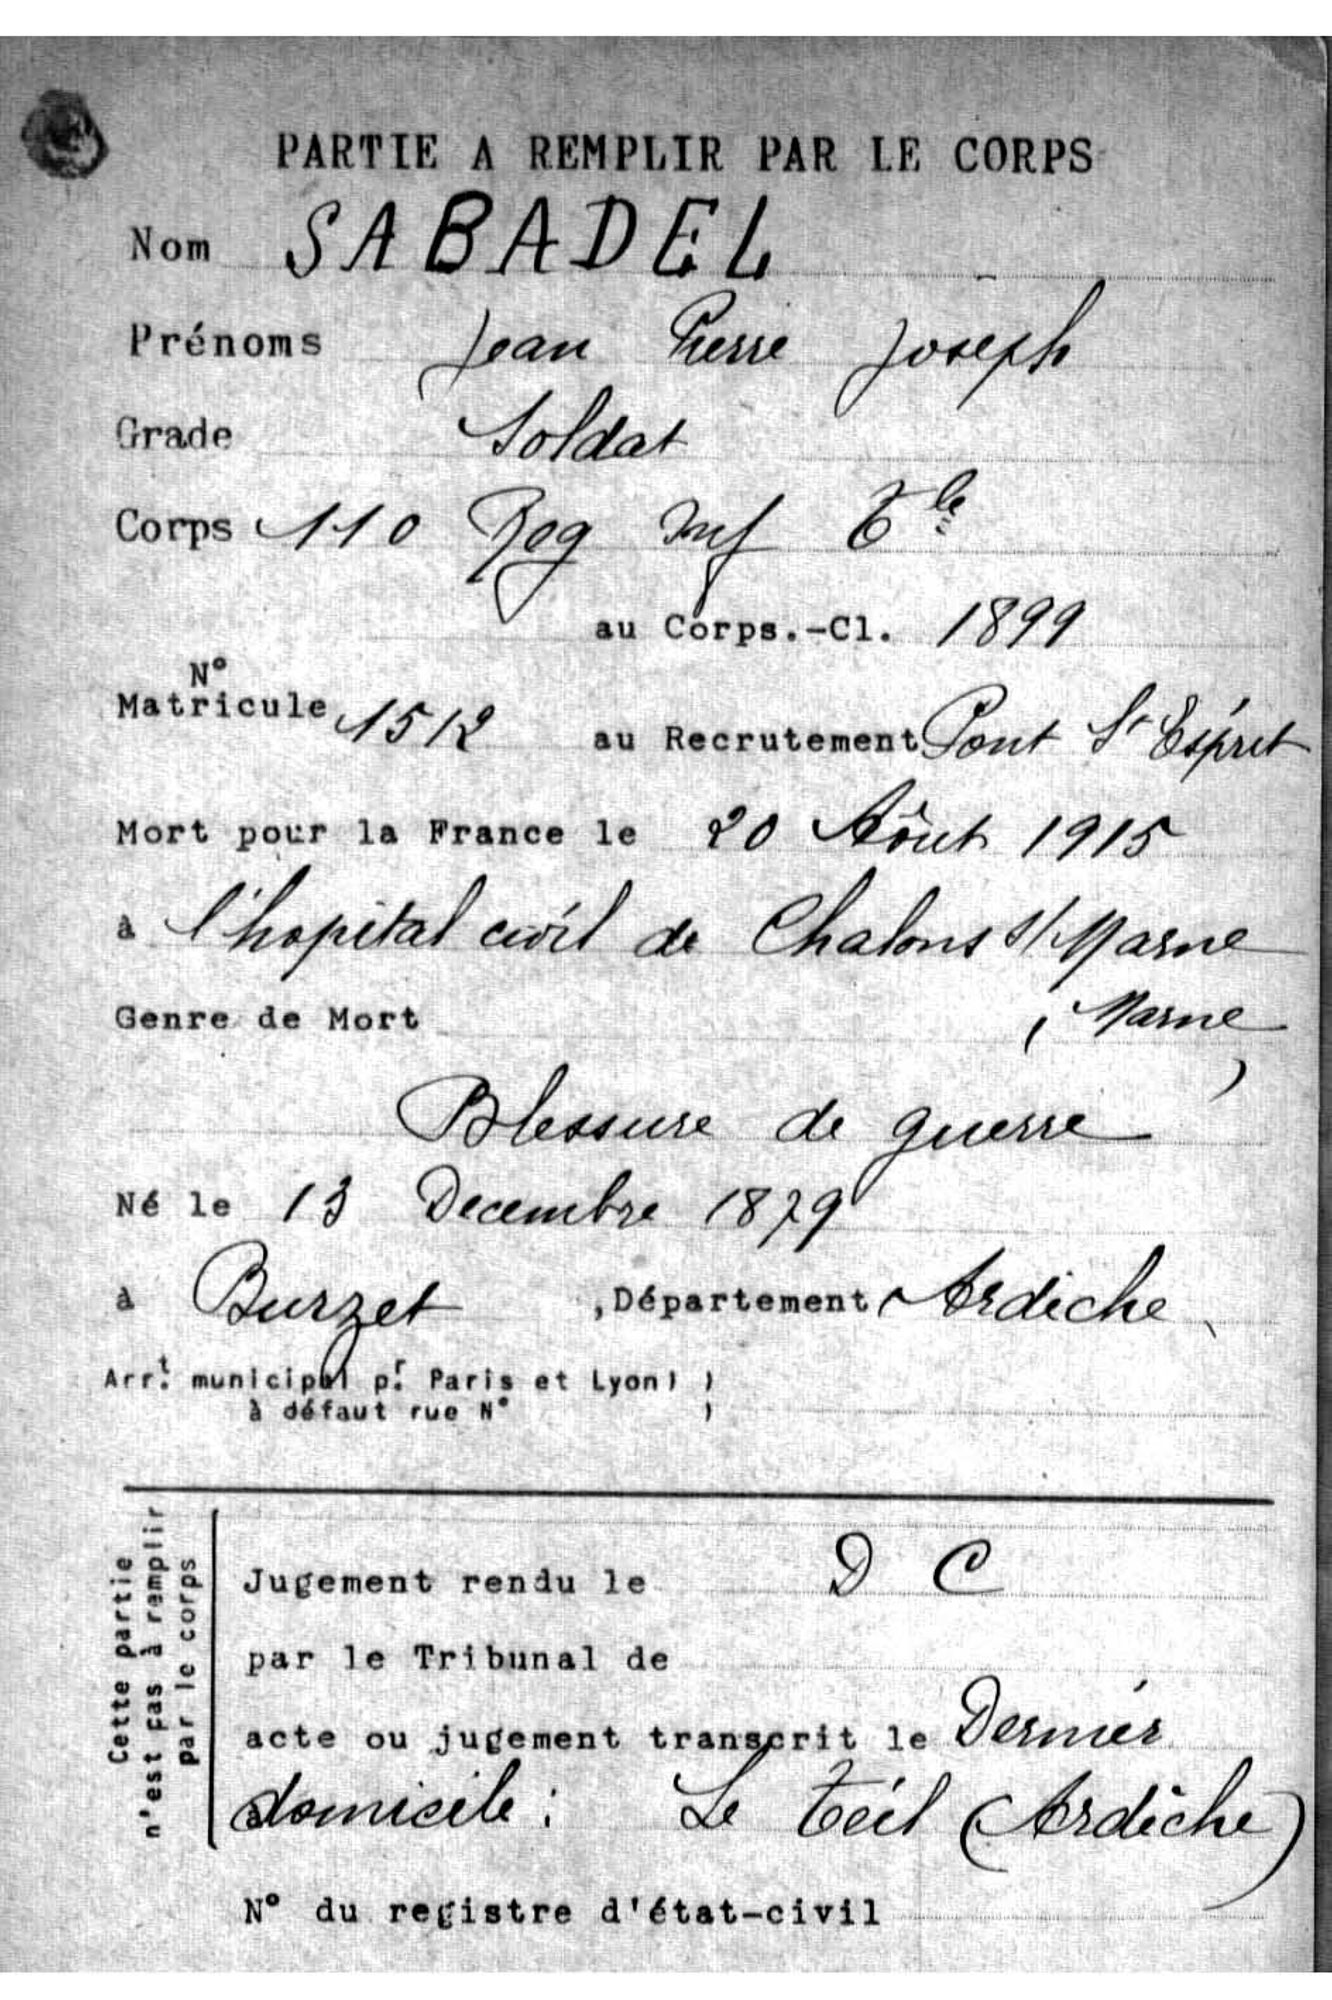 PARTIE A REMPLIR PAR LE CORPS
Nom SABADEL
Prénoms Jean Pierre Joseph
Grade Soldat
Corps 110 Reg Inf Tle
au Corps.-Cl. 1899
N°
Matricule 1512 au Recrutement Pont St Esprit
Mort pour la France le 20 Aôut 1915
à l'hopital civil de Chalons s/Marne
Genre de Mort (Marne)
Blessure de guerre
Né le 13 Decembre 1879
à Burzet ,Département Ardèche
Arrt municipal pr Paris et Lyon) )
à défaut rue N° )
Cette partie
n'est pas à remplir
par le corps
Jugement rendu le D C
par le Tribunal de
acte ou jugement transcrit le Dernier
domicile : Le Teil (Ardèche)
N° du registre d'état-civil